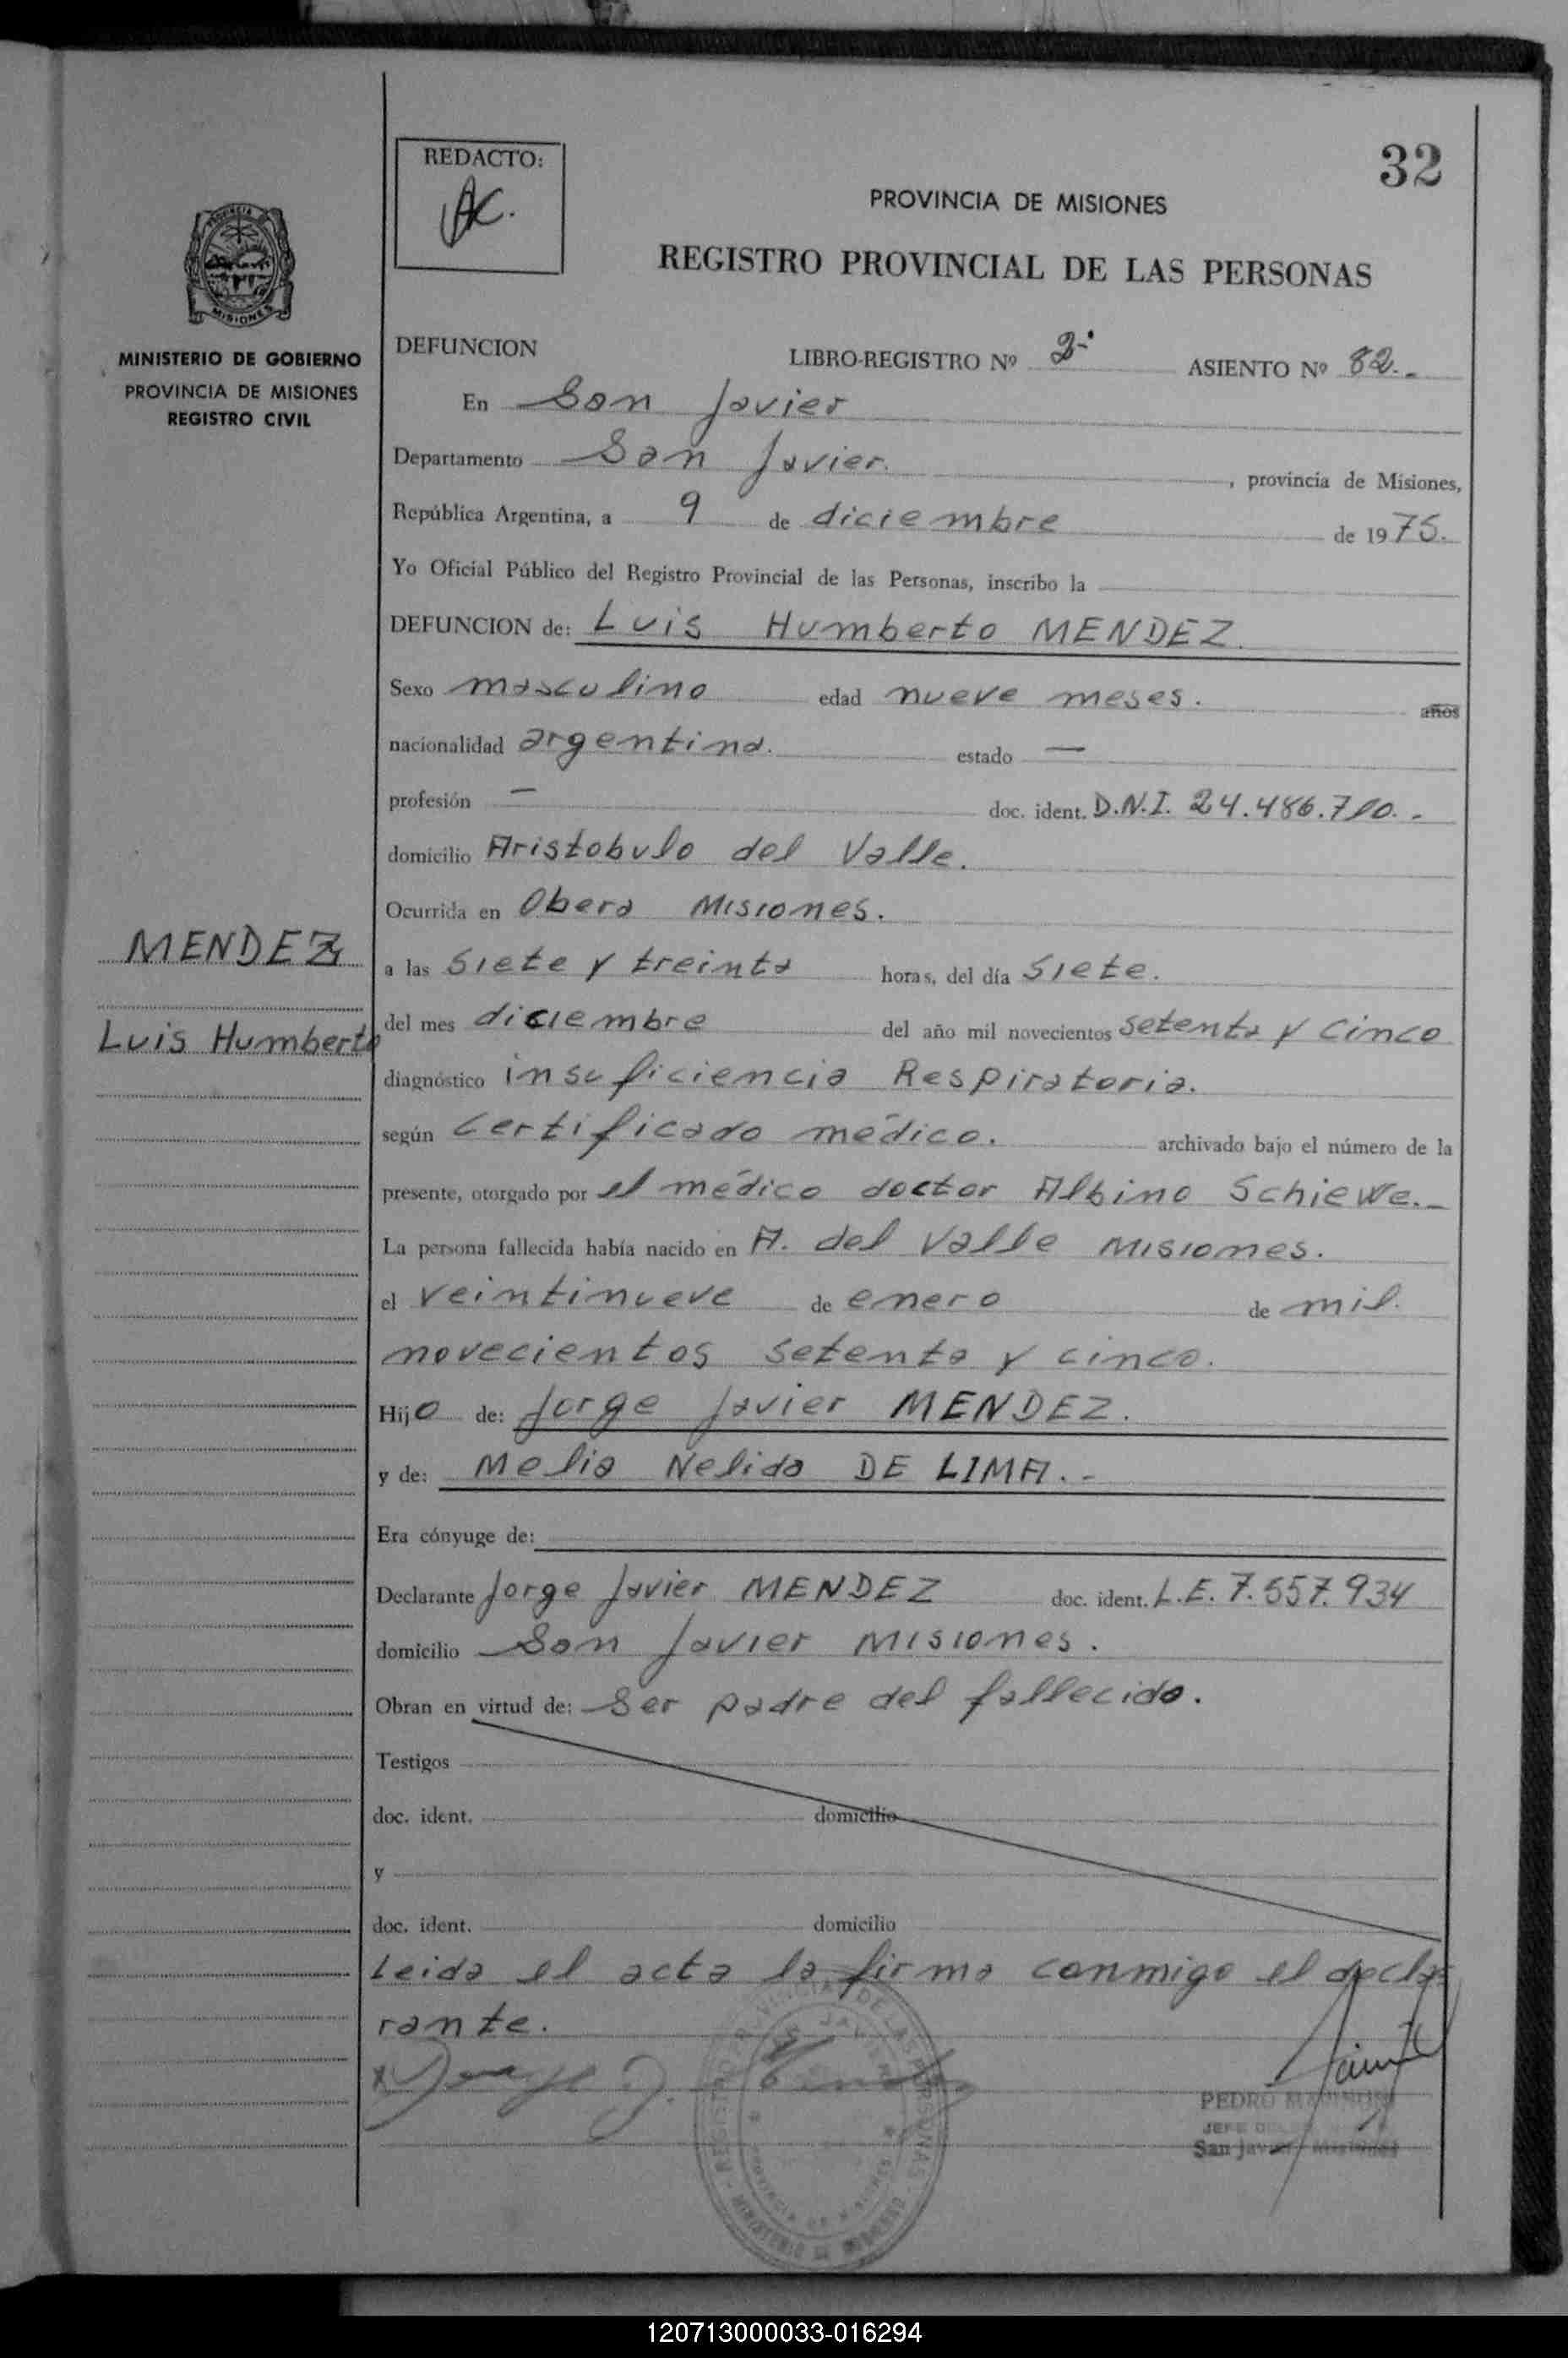 32
REDACTO:
AC.
PROVINCIA DE MISIONES
REGISTRO PROVINCIAL DE LAS PERSONAS
MISIONES
MINISTERIO DE GOBIERNO
PROVINCIA DE MISIONES
REGISTRO CIVIL
DEFUNCION LIBRO-REGISTRO Nº 2- ASIENTO Nº 82.-
En San Javier
Departamento San Javier. , provincia de Misiones,
República Argentina, a 9 de diciembre de 1975.
Yo Oficial Público del Registro Provincial de las Personas, inscribo la
DEFUNCION de: Luis Humberto MENDEZ.
Sexo masculino edad nueve meses. años
nacionalidad argentina. estado —
profesión — doc. ident. D.N.I. 24.486.710.-
domicilio Aristobulo del Valle.
Ocurrida en Obera Misiones.
MENDEZ
a las siete y treinta horas, del día siete.
Luis Humberto
del mes diciembre del año mil novecientos setenta y cinco
diagnóstico insuficiencia Respiratoria.
según certificado médico. archivado bajo el número de la
presente, otorgado por el médico doctor Albino Schiewe.-
La persona fallecida había nacido en A. del Valle Misiones.
el veintinueve de enero de mil.
novecientos setenta y cinco.
Hijo de: Jorge Javier MENDEZ.
y de: Melia Nelida DE LIMA.-
Era cónyuge de:
Declarante Jorge Javier MENDEZ doc. ident. L.E. 7.557.934
domicilio San Javier Misiones.
Obran en virtud de: Ser padre del fallecido.
Testigos
doc. ident. domicilio
y
doc. ident. domicilio
Leida el acta la firma conmigo el decla
rante.
PEDRO
JEFE
San Javier Misiones
120713000033-016294